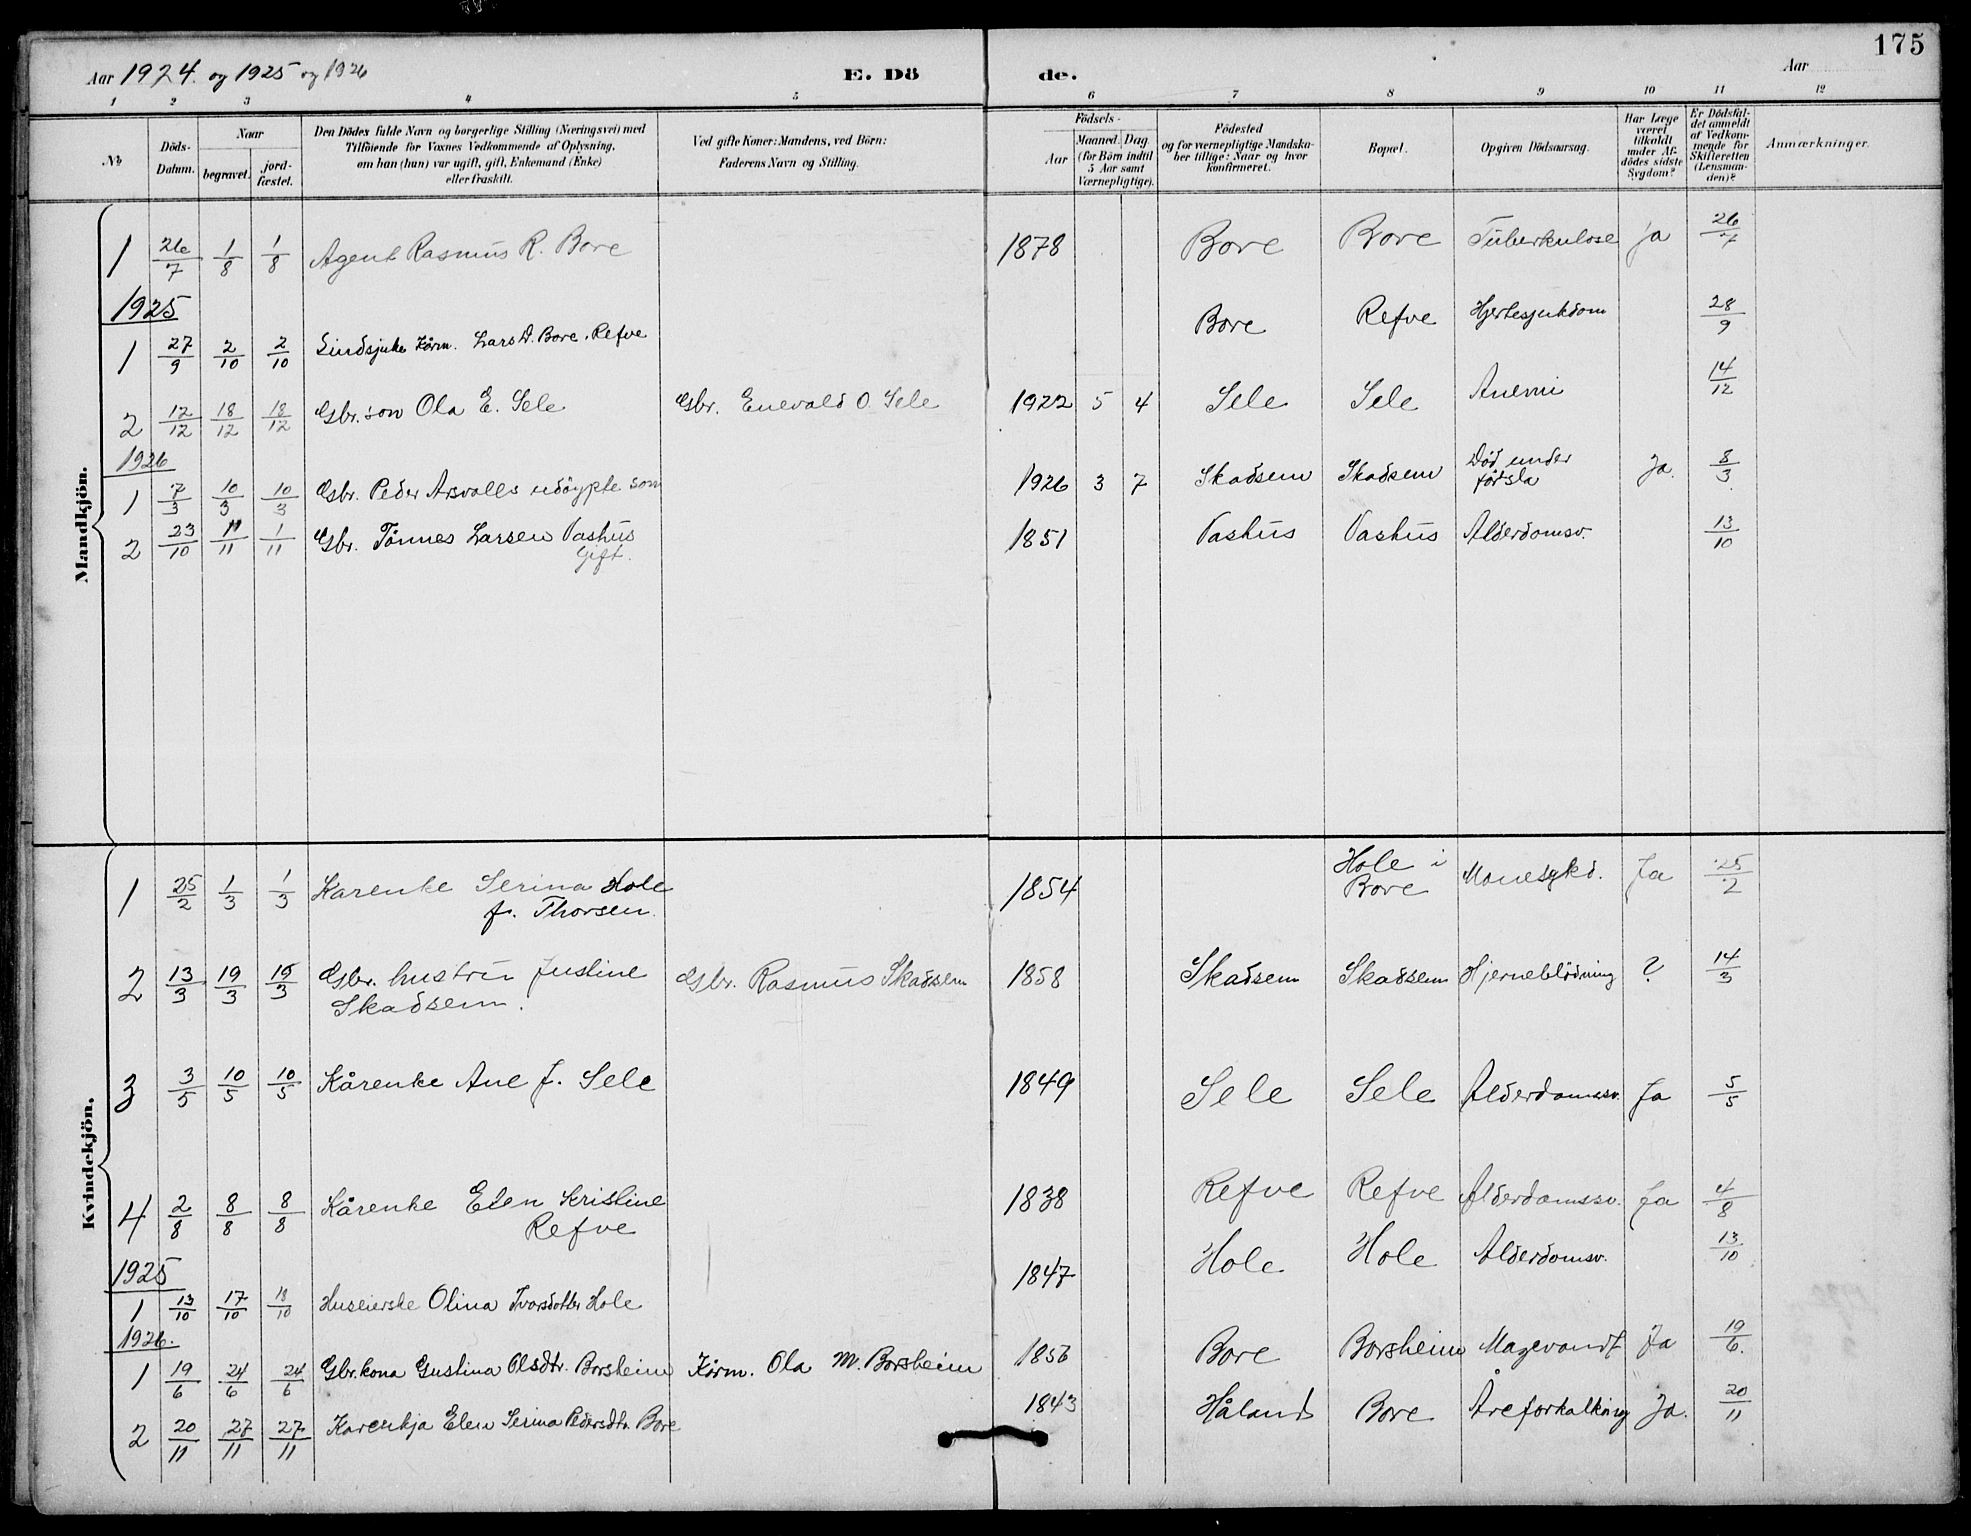 175
Aar 1924. og 1925 og 1926 E. Dö de. Aar
1 2 3 4 5 6 7 8 9 10 11 12
No Döds-Datum. Naar begravet. jord-fæstet. Den Dödes fulde Navn og borgerlige Stilling (Næringsvei) med Tilföiende for Voxnes Vedkommende af Oplysning, om han (hun) var ugift, gift, Enkemand (Enke) eller fraskilt. Ved gifte Koner: Mandens, ved Börn: Faderens Navn og Stilling. Födsels- Aar Maaned. Dag (for Börn indtil 5 Aar samt Værnepligtige). Födested og for værnepligtige Mandskaber tillige: Naar og hvor konfirmeret. Bopæl. Opgiven Dödsaarsag. Har Læge været tilkaldt under Afdödes sidste Sygdom? Er Dödsfaldet anmeldt af Vedkommende for Skifteretten (Lensmanden)? Anmærkninger.
Mandkjön.
1 26/7 1/8 1/8 Agent Rasmus R. Bore 1878 Bore Bore Tuberkulose Ja 26/7
1925
1 27/9 2/10 2/10 Sindsjuke Kårm. Lars D. Bore. Refve Bore Refve Hjertesjukdom 28/9
2 12/12 18/12 18/12 Gbr. son Ola E. Sele Gbr. Enevald O. Sele 1922 5 4 Sele Sele Anemi 14/12
1926
1 7/3 10/3 10/3 Gbr. Peder Arsvolls udöypte son 1926 3 7 Skadsem Skadsem Död under försla Ja. 8/3
2 23/10 1/11 1/11 Gbr. Tönnes Larsen Vashus Gift. 1851 Vashus Vashus Alderdomsv. 13/10
Kvindekjön.
1 25/2 1/3 1/3 Karenke Serina Hole f. Thorsen 1854 Hole i Bore Mavesykd. Ja 25/2
2 13/3 19/3 19/3 Gbr. hustru Justine Skadsem. Gbr. Rasmus Skadsem 1858 Skadsem Skadsem Hjerneblödning ? 14/3
3 3/5 10/5 10/5 Kårenke Ane J. Sele 1849 Sele Sele Alderdomssv. Ja 5/5
4 2/8 8/8 8/8 Kårenke Elen Kristine Refve 1838 Refve Refve Alderdomssv. Ja 4/8
1925
1 13/10 17/10 18/10 Huseierske Olina Ivarsdotter Hole 1847 Hole Hole Alderdomsv. 13/10
1926.
1 19/6 24/6 24/6 Gbr. kona Gustina Olsdtr. Borsheim Kårm. Ola M. Borsheim 1856 Bore Borsheim Magevondt Ja 19/6.
2 20/11 27/11 27/11 Karenkja Elen Serina Pedersdtr. Bore 1843 Håland Bore Åreforkalking Ja. 20/11